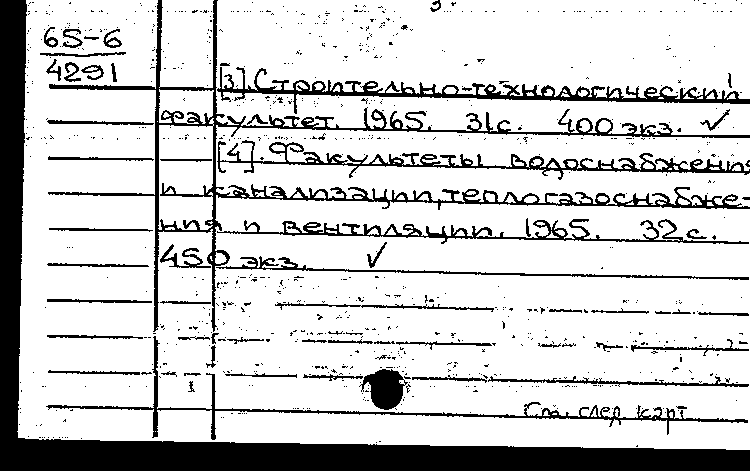 65-6
4291
[3]. Строительно-технологический
факультет. 1965. 31с. 400 экз. ✓
[4]. Факультеты водоснабжения
и канализации, теплогазоснабже-
ния и вентиляции. 1965. 32 с.
450 экз. ✓
См. след. карт